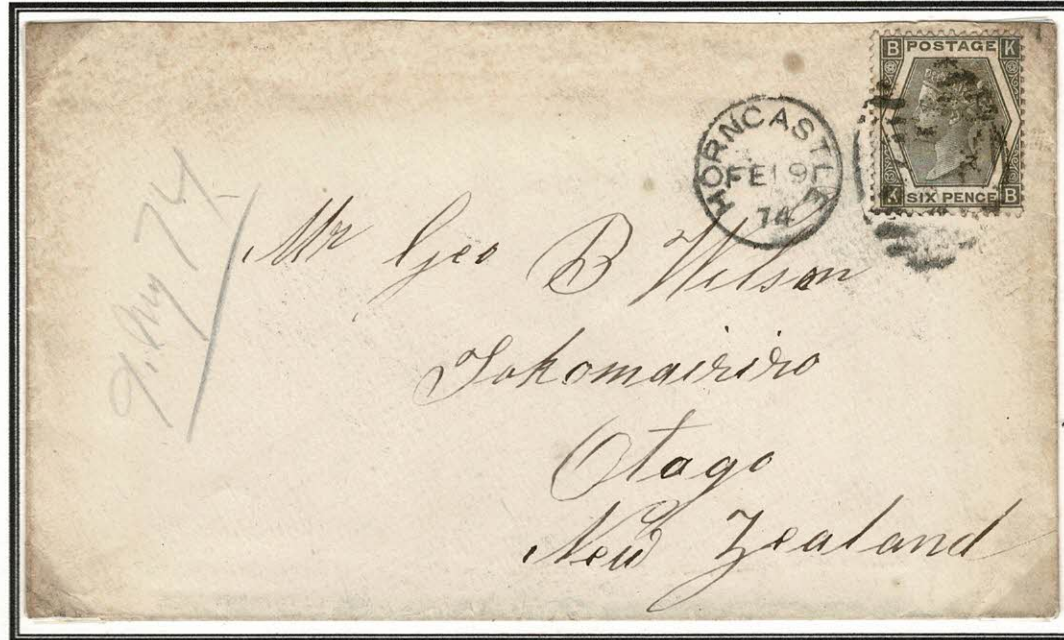 B POSTAGE K
K SIX PENCE B
HORNCASTLE
FE 19
74
Mr Geo B Wilson
Tokomairiro
Otago
New Zealand
74